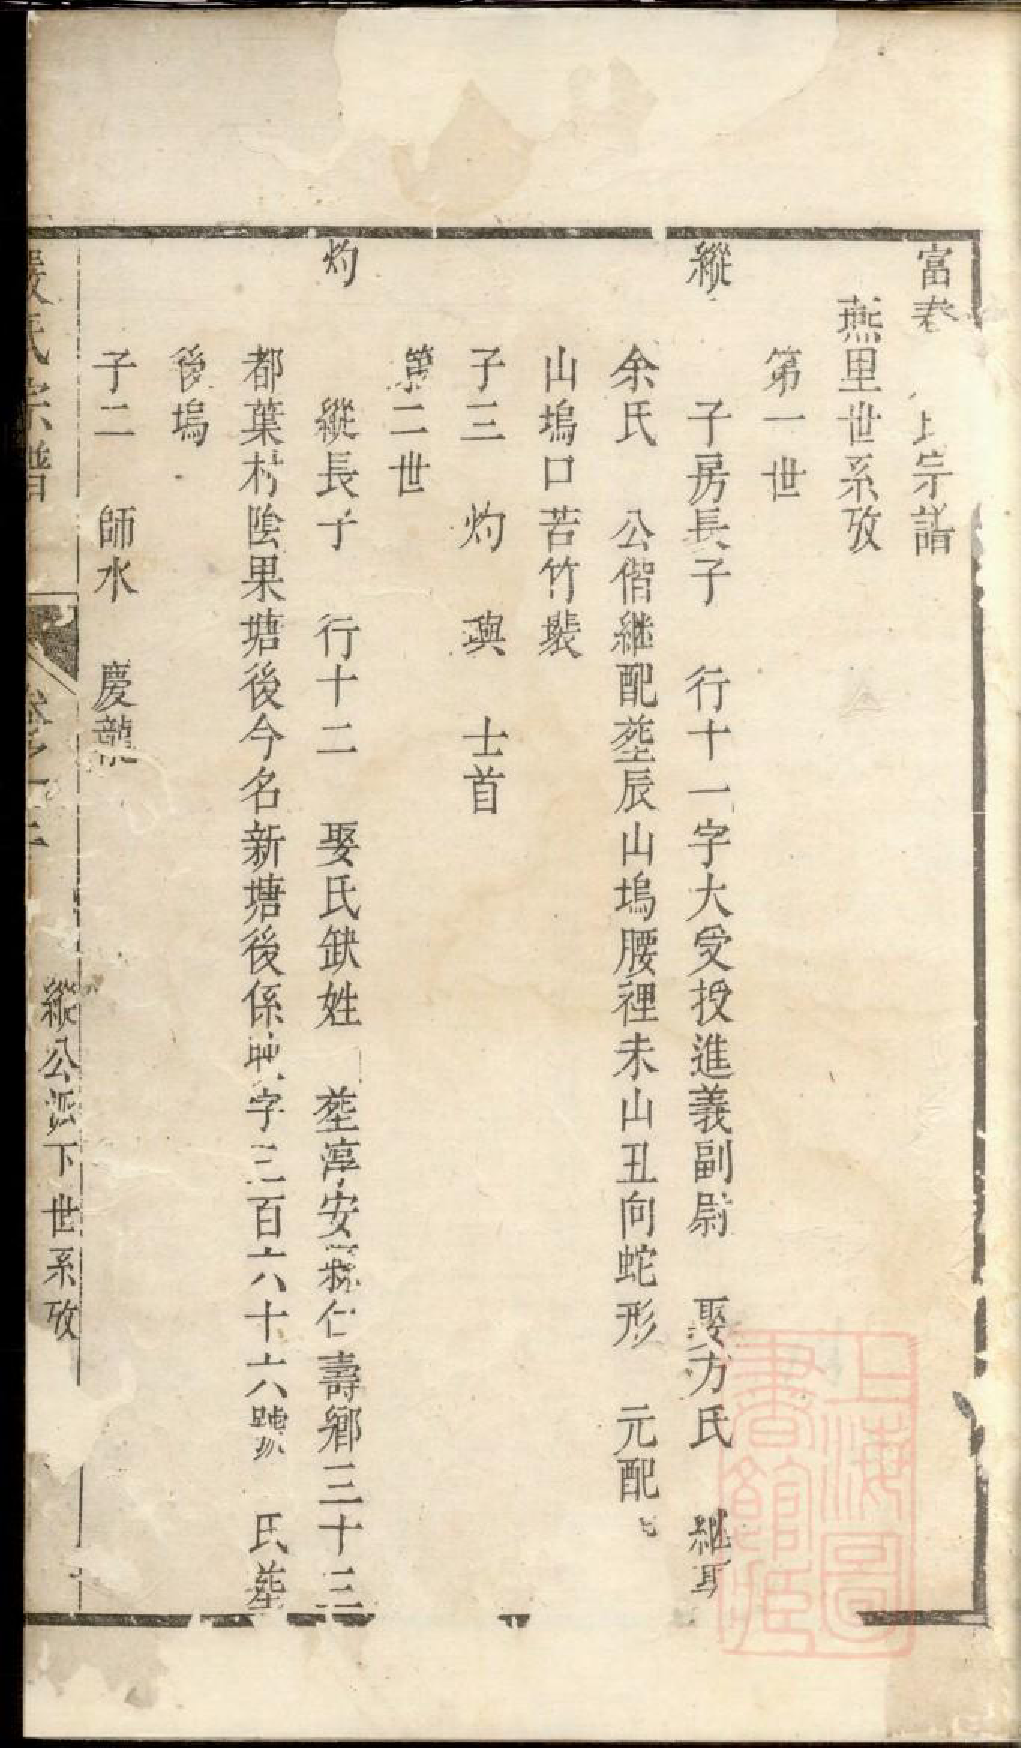 富春 氏宗譜
燕里世系攷
第一世
縱 子房長子 行十一字大受授進義副尉 娶方氏 繼耳
余氏 公偕繼配塟辰山塢腰裡未山丑向蛇形 元配
山塢口苦竹裴
子三 灼 璵 士首
第二世
灼 縱長子 行十二 娶氏缺姓 塟淳安縣仁壽鄉三十三
都葉村陰果塘後今名新塘後係 字三百六十六號 氏塟
後塢
子二 師水 慶龍
嚴氏宗譜 卷之 縱公派下世系攷
上海圖書館藏